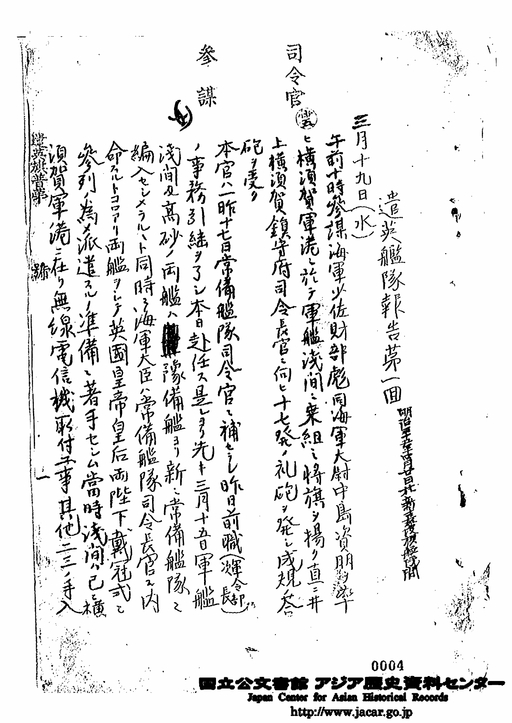 遣英艦隊報告第一回
三月十九日(水)
午前十時参謀海軍少佐財部彪同海軍大尉中島資朋ヲ率
ヒ横須賀軍港ニ於テ軍艦浅間ニ乗組ミ将旗ヲ揚ク直ニ井
上横須賀鎮守府司令長官ニ向ヒ十七発ノ礼砲ヲ発シ成規ノ答
砲ヲ受ク
司令官
参謀
本官ハ一昨十七日常備艦隊司令官ニ補セラレ昨日前職
ノ事務引継ヲ了シ本日赴任ス是ヨリ先キ三月十五日軍艦
浅間及高砂ノ両艦ハ予備艦ヨリ新ニ常備艦隊ニ
編入セシメラルヽト同時ニ海軍大臣ハ常備艦隊司令長官ニ内
命スルトコロアリ両艦ヲシテ英国皇帝皇后両陛下戴冠式ニ
参列ノ為メ派遣スルノ準備ニ着手セシム当時浅間ハ已ニ横
須賀軍港ニ在リ無線電信機取付工事其他二三ノ手入
一
0004
国立公文書館 アジア歴史資料センター
Japan Center for Asian Historical Records
http://www.jacar.go.jp